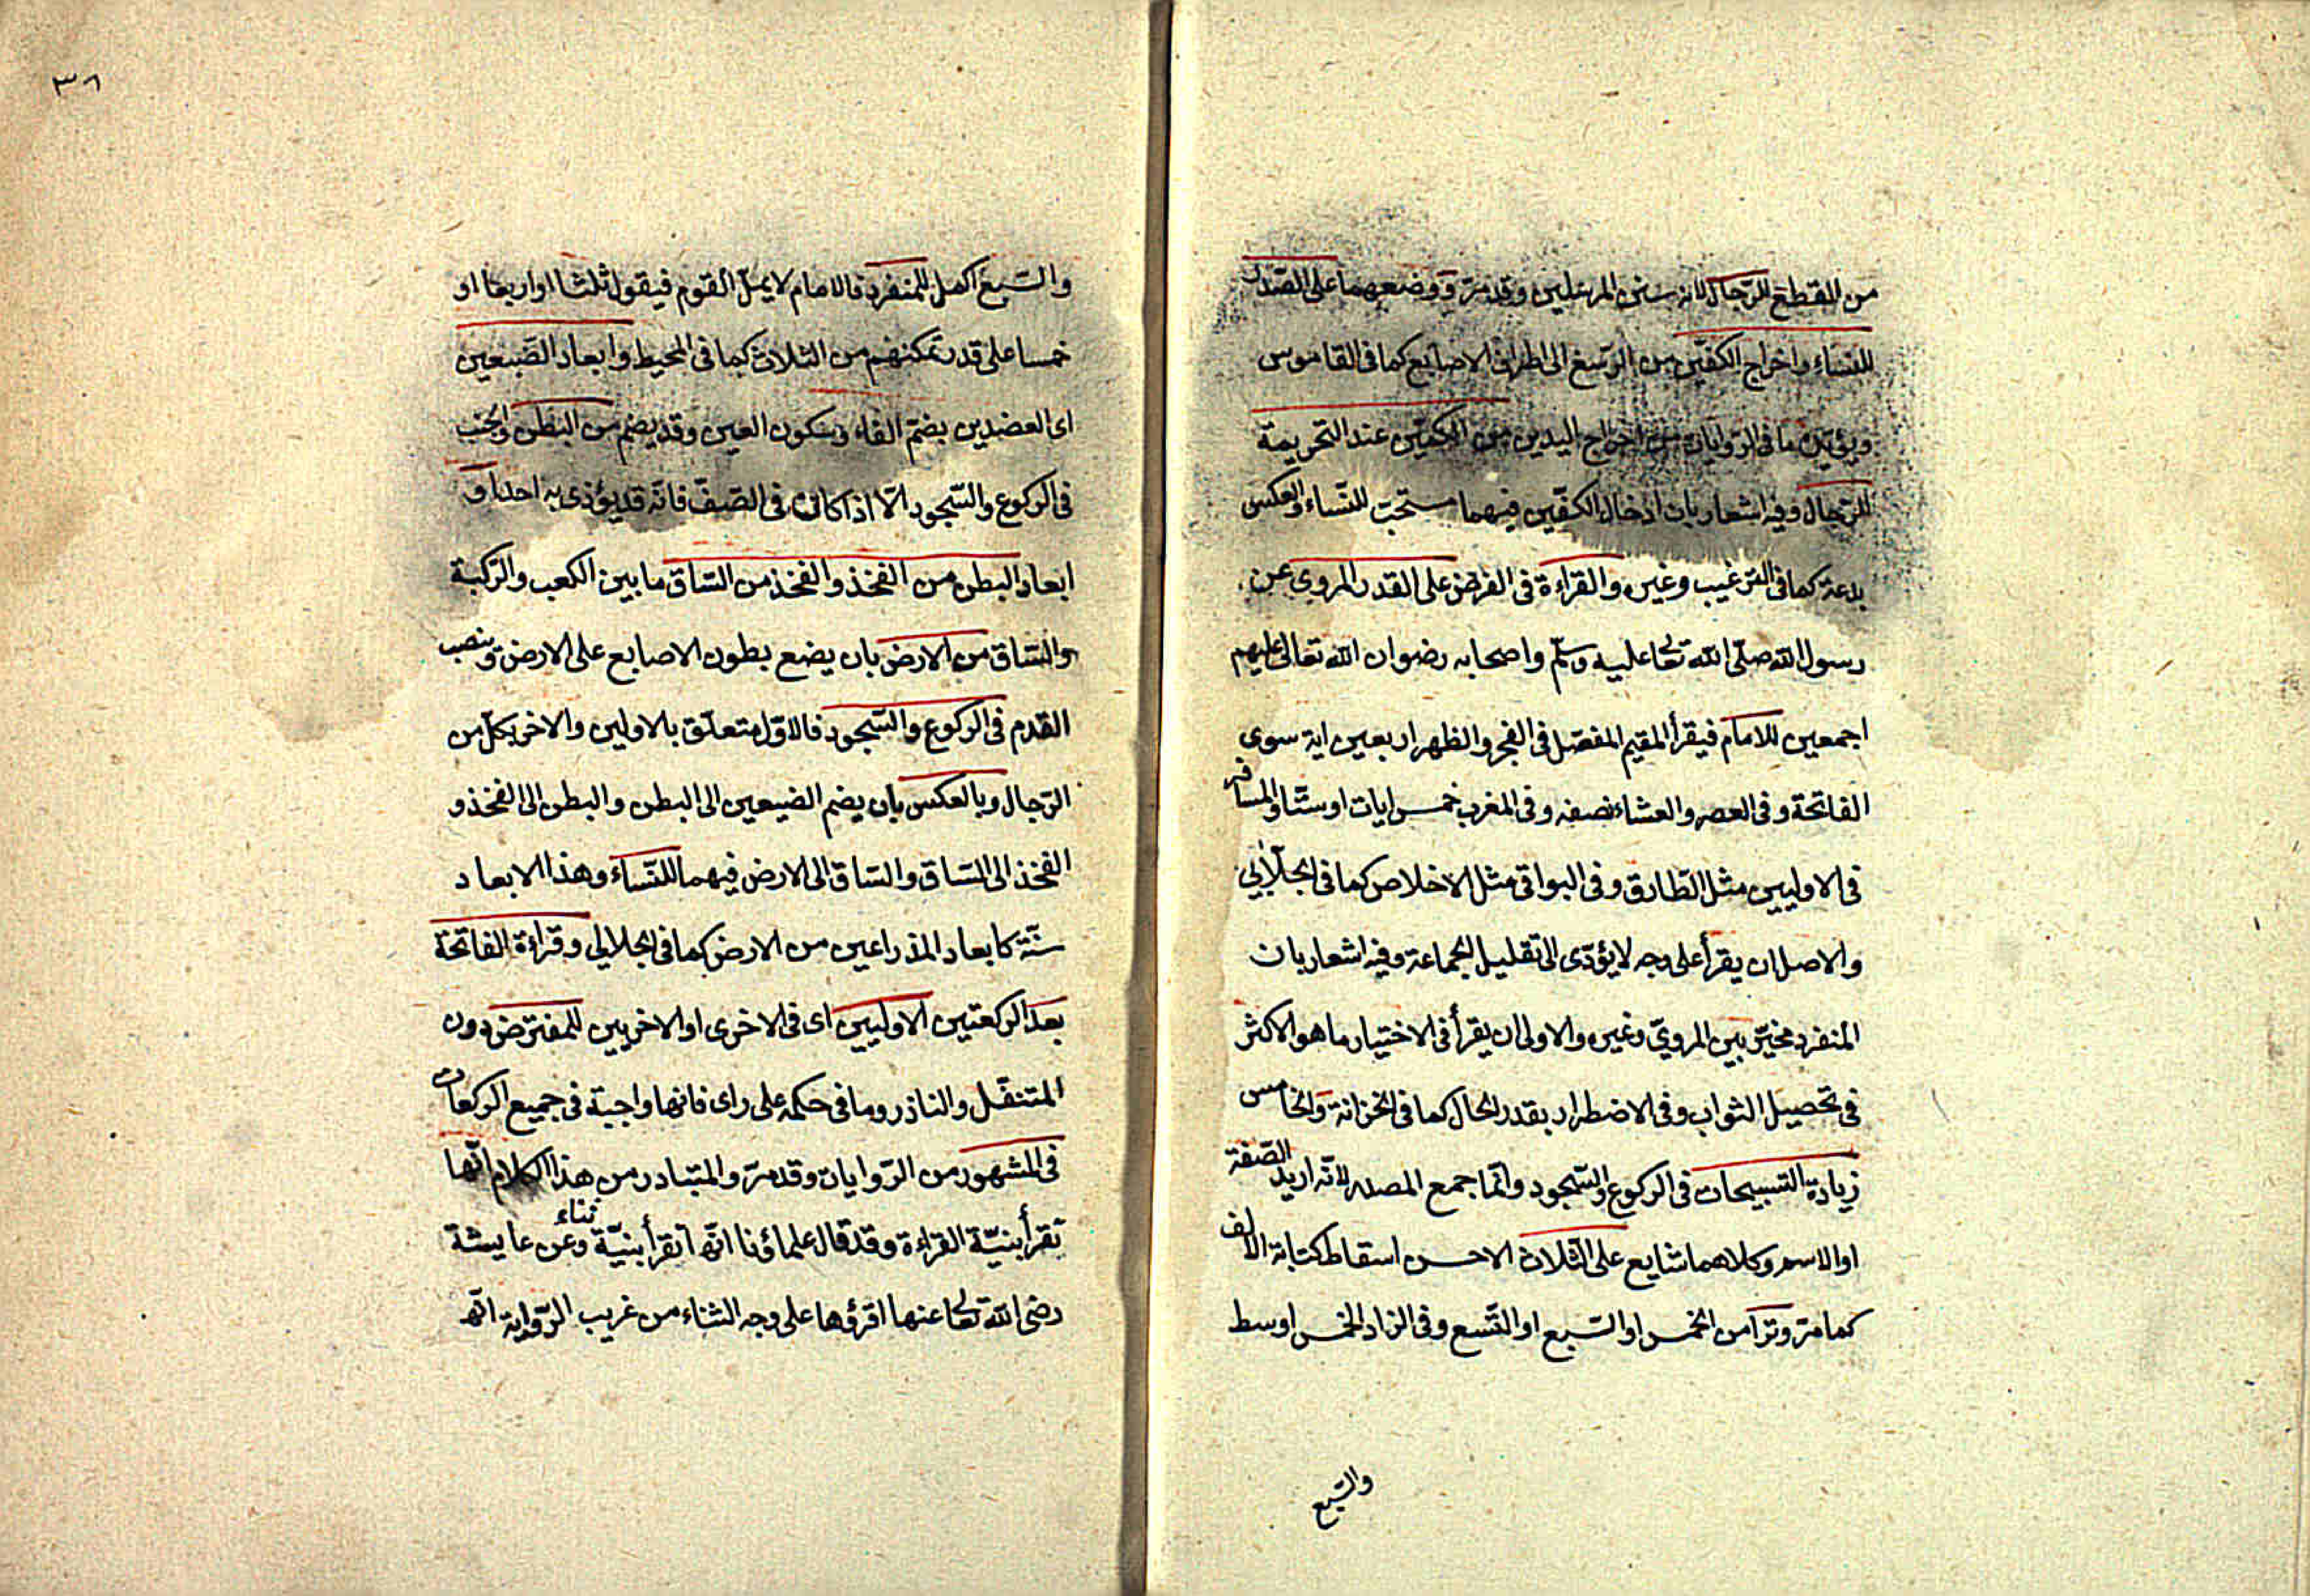 من القطع للرجال لانه سنن المرسلين وقد مرّ ووضعهما على الصّدر
للنساء واخراج الكفّين من الرّسغ الى اطراف الاصابع كما فى القاموس
ويؤيّده ما فى الرّوايات من اخراج اليدين من الكمّين عند التحريمة
للرّجال وفيه اشعار بان ادخال الكفّين فيهما مستحبّ للنّساء والعكس
بدعة كما فى الترغيب وغيره والقراءة فى الفرض على القدر المروىّ عن
رسول الله صلّى الله تعالى عليه وسلّم واصحابه رضوان الله تعالى عليهم
اجمعين للامام فيقرأ المقيم المفصّل فى الفجر والظهر اربعين اية سوى
الفاتحة وفى العصر والعشاء نصفه وفى المغرب خمس ايات او ستّا والمسافر
فى الاوليين مثل الطّارق وفى البواقى مثل الاخلاص كما فى الجلّابى
والاصل ان يقرأ على وجه لا يؤدّى الى تقليل الجماعة وفيه اشعار بان
المنفرد مخيّر بين المروىّ وغيره والاولى ان يقرأ فى الاختيار ما هو الاكثر
فى تحصيل الثواب وفى الاضطرار بقدر الحال كما فى الخزانة والخامس
زيادة التسبيحات فى الركوع والسّجود وانّما جمع المصدر لانّه اريد الصّفة
او الاسم وكلاهما شايع على الثّلاث الاحسن اسقاط كتابة الالف
كما مرّ وترا من الخمس او السّبع او التّسع وفى الزاد الخمس اوسط
والسّبع
٣٨
والسّبع اكمل للمنفرد فالامام لا يملّ القوم فيقول ثلثا او اربعا او
خمسا على قدر تمكنهم من الثلاث كما فى المحيط وابعاد الضّبعين
اى العضدين بضمّ الفاء وسكون العين وقد يضم من البطن والجنب
فى الركوع والسّجود الّا اذا كان فى الصّفّ فانّه قد يؤذى به احدا و
ابعاد البطن من الفخذ والفخذ من السّاق ما بين الكعب والرّكبة
والسّاق من الارض بان يضع بطون الاصابع على الارض وينصب
القدم فى الركوع والسّجود فالاوّل متعلّق بالاولين والاخر بكلّ من
الرّجال وبالعكس بان يضم الضبعين الى البطن والبطن الى الفخذ و
الفخذ الى السّاق والسّاق الى الارض فيهما للنّساء وهذا الابعاد
سنّة كابعاد الذراعين من الارض كما فى الجلالى وقراءة الفاتحة
بعد الركعتين الاوليين اى فى الاخرى او الاخريين للمفترض دون
المتنفّل والناذر وما فى حكمه على راى فانها واجبة فى جميع الركعات
فى المشهور من الرّوايات وقد مرّ والمتبادر من هذا الكلام انّها
تقرأ بنيّة القراءة وقد قال علماؤنا انّها تقرأ بنيّة ثناء وعن عايشة
رضى الله تعالى عنها اقرؤها على وجه الثناء من غريب الرّواية انّه